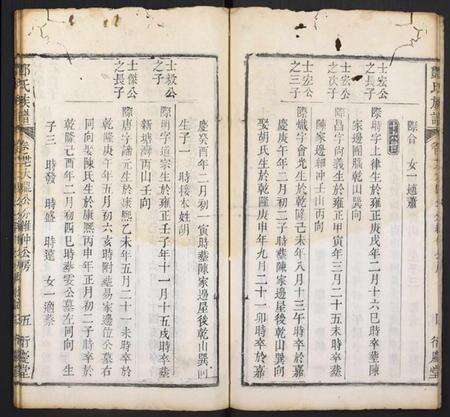 際合 女一適蕭
士宏公之次子
際明字上律生於雍正庚戌年二月十六巳時卒葬陳
家邊團腦乾山巽向
士宏公之次子
際昌字向義生於雍正甲寅年三月二十五未時卒葬
陳家邊細冲壬山丙向
士宏公之三子
際熾字會光生於乾隆己未年八月十三午時卒於嘉
慶庚午年二月初二子時葬陳家邊屋後乾山巽向
娶胡氏生於乾隆庚申年九月二十一卯時卒於嘉
慶癸酉年二月初一寅時葬陳家邊星後乾山巽向
生子一 時接本姓胡
士毅公之子
際明字道宗生於雍正壬子年十一月十五戌時卒葬
新塘灣丙山壬向
士傑公之長子
際唐字 元生於康熙乙未年五月二十一未時卒於
乾隆 年五月初六亥時附葬易家邊位公墓右
同向娶陳氏生於康熙丙申年正月初二子時卒於
乾隆己酉年二月初四巳時葬雲公墓左同向 生
子三 時發 時盛 時遠 女一適蔡
氏族譜
五 行慶堂